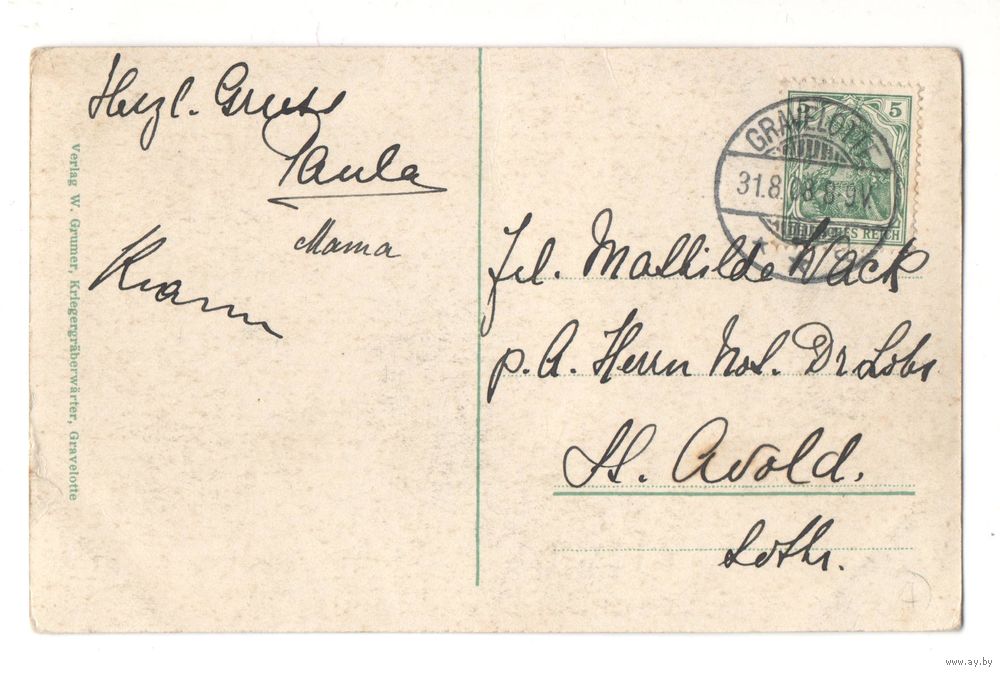 Herzl. Gruss
Paula
Mama
Verlag W. Grumer, Kriegergräberwärter, Gravelotte
5 5
GRAVELOTTE
31.8.08 8-9V.
DEUTSCHES REICH
Frl. Mathilde Wack
p. A. Herrn Not. Dr
St. Avold.
Lothr.
www.ay.by